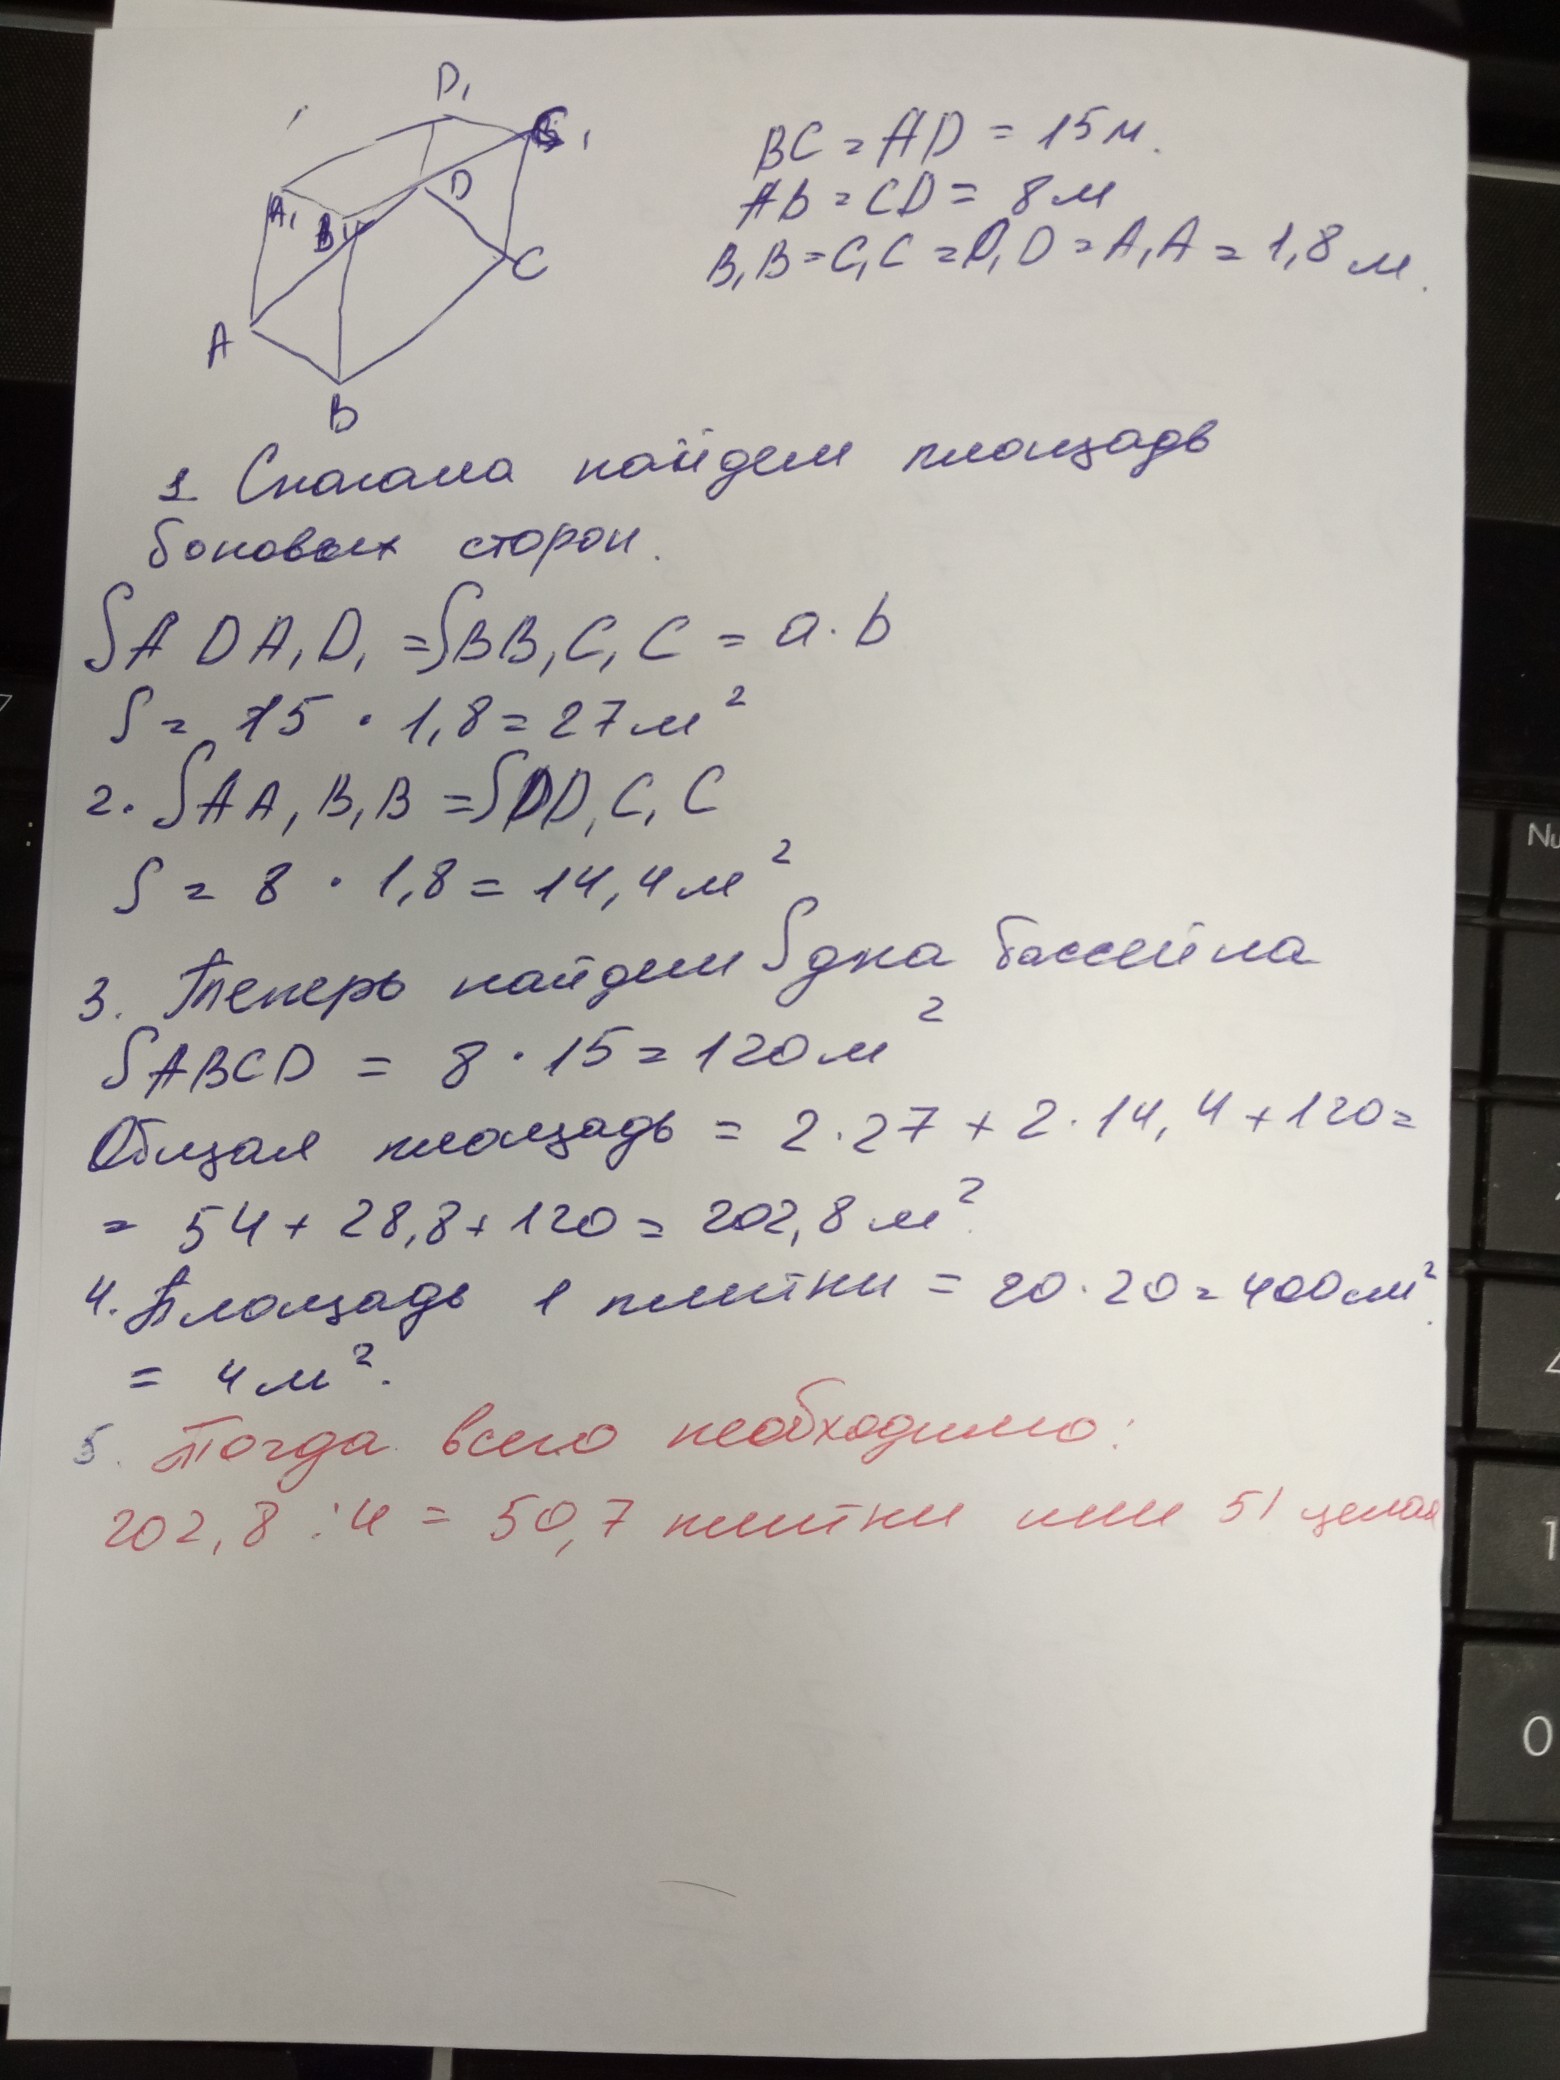 D₁
C₁
A₁
B₁
D
C
A
B
BC = AD = 15 м.
AB = CD = 8 м
B₁B = C₁C = D₁D = A₁A = 1,8 м.
1 Сначала найдем площадь
боковых сторон.
S ADA₁D₁ = S BB₁C₁C = a · b
S = 15 · 1,8 = 27 м²
2. S AA₁B₁B = S DD₁C₁C
S = 8 · 1,8 = 14,4 м²
3. Теперь найдем S дна бассейна
S ABCD = 8 · 15 = 120 м²
Общая площадь = 2 · 27 + 2 · 14,4 + 120 =
= 54 + 28,8 + 120 = 202,8 м².
4. Площадь 1 плитки = 20 · 20 = 400 см².
= 4 м².
5. Тогда всего необходимо:
202,8 : 4 = 50,7 плитки или 51 целая
Nu
1
0